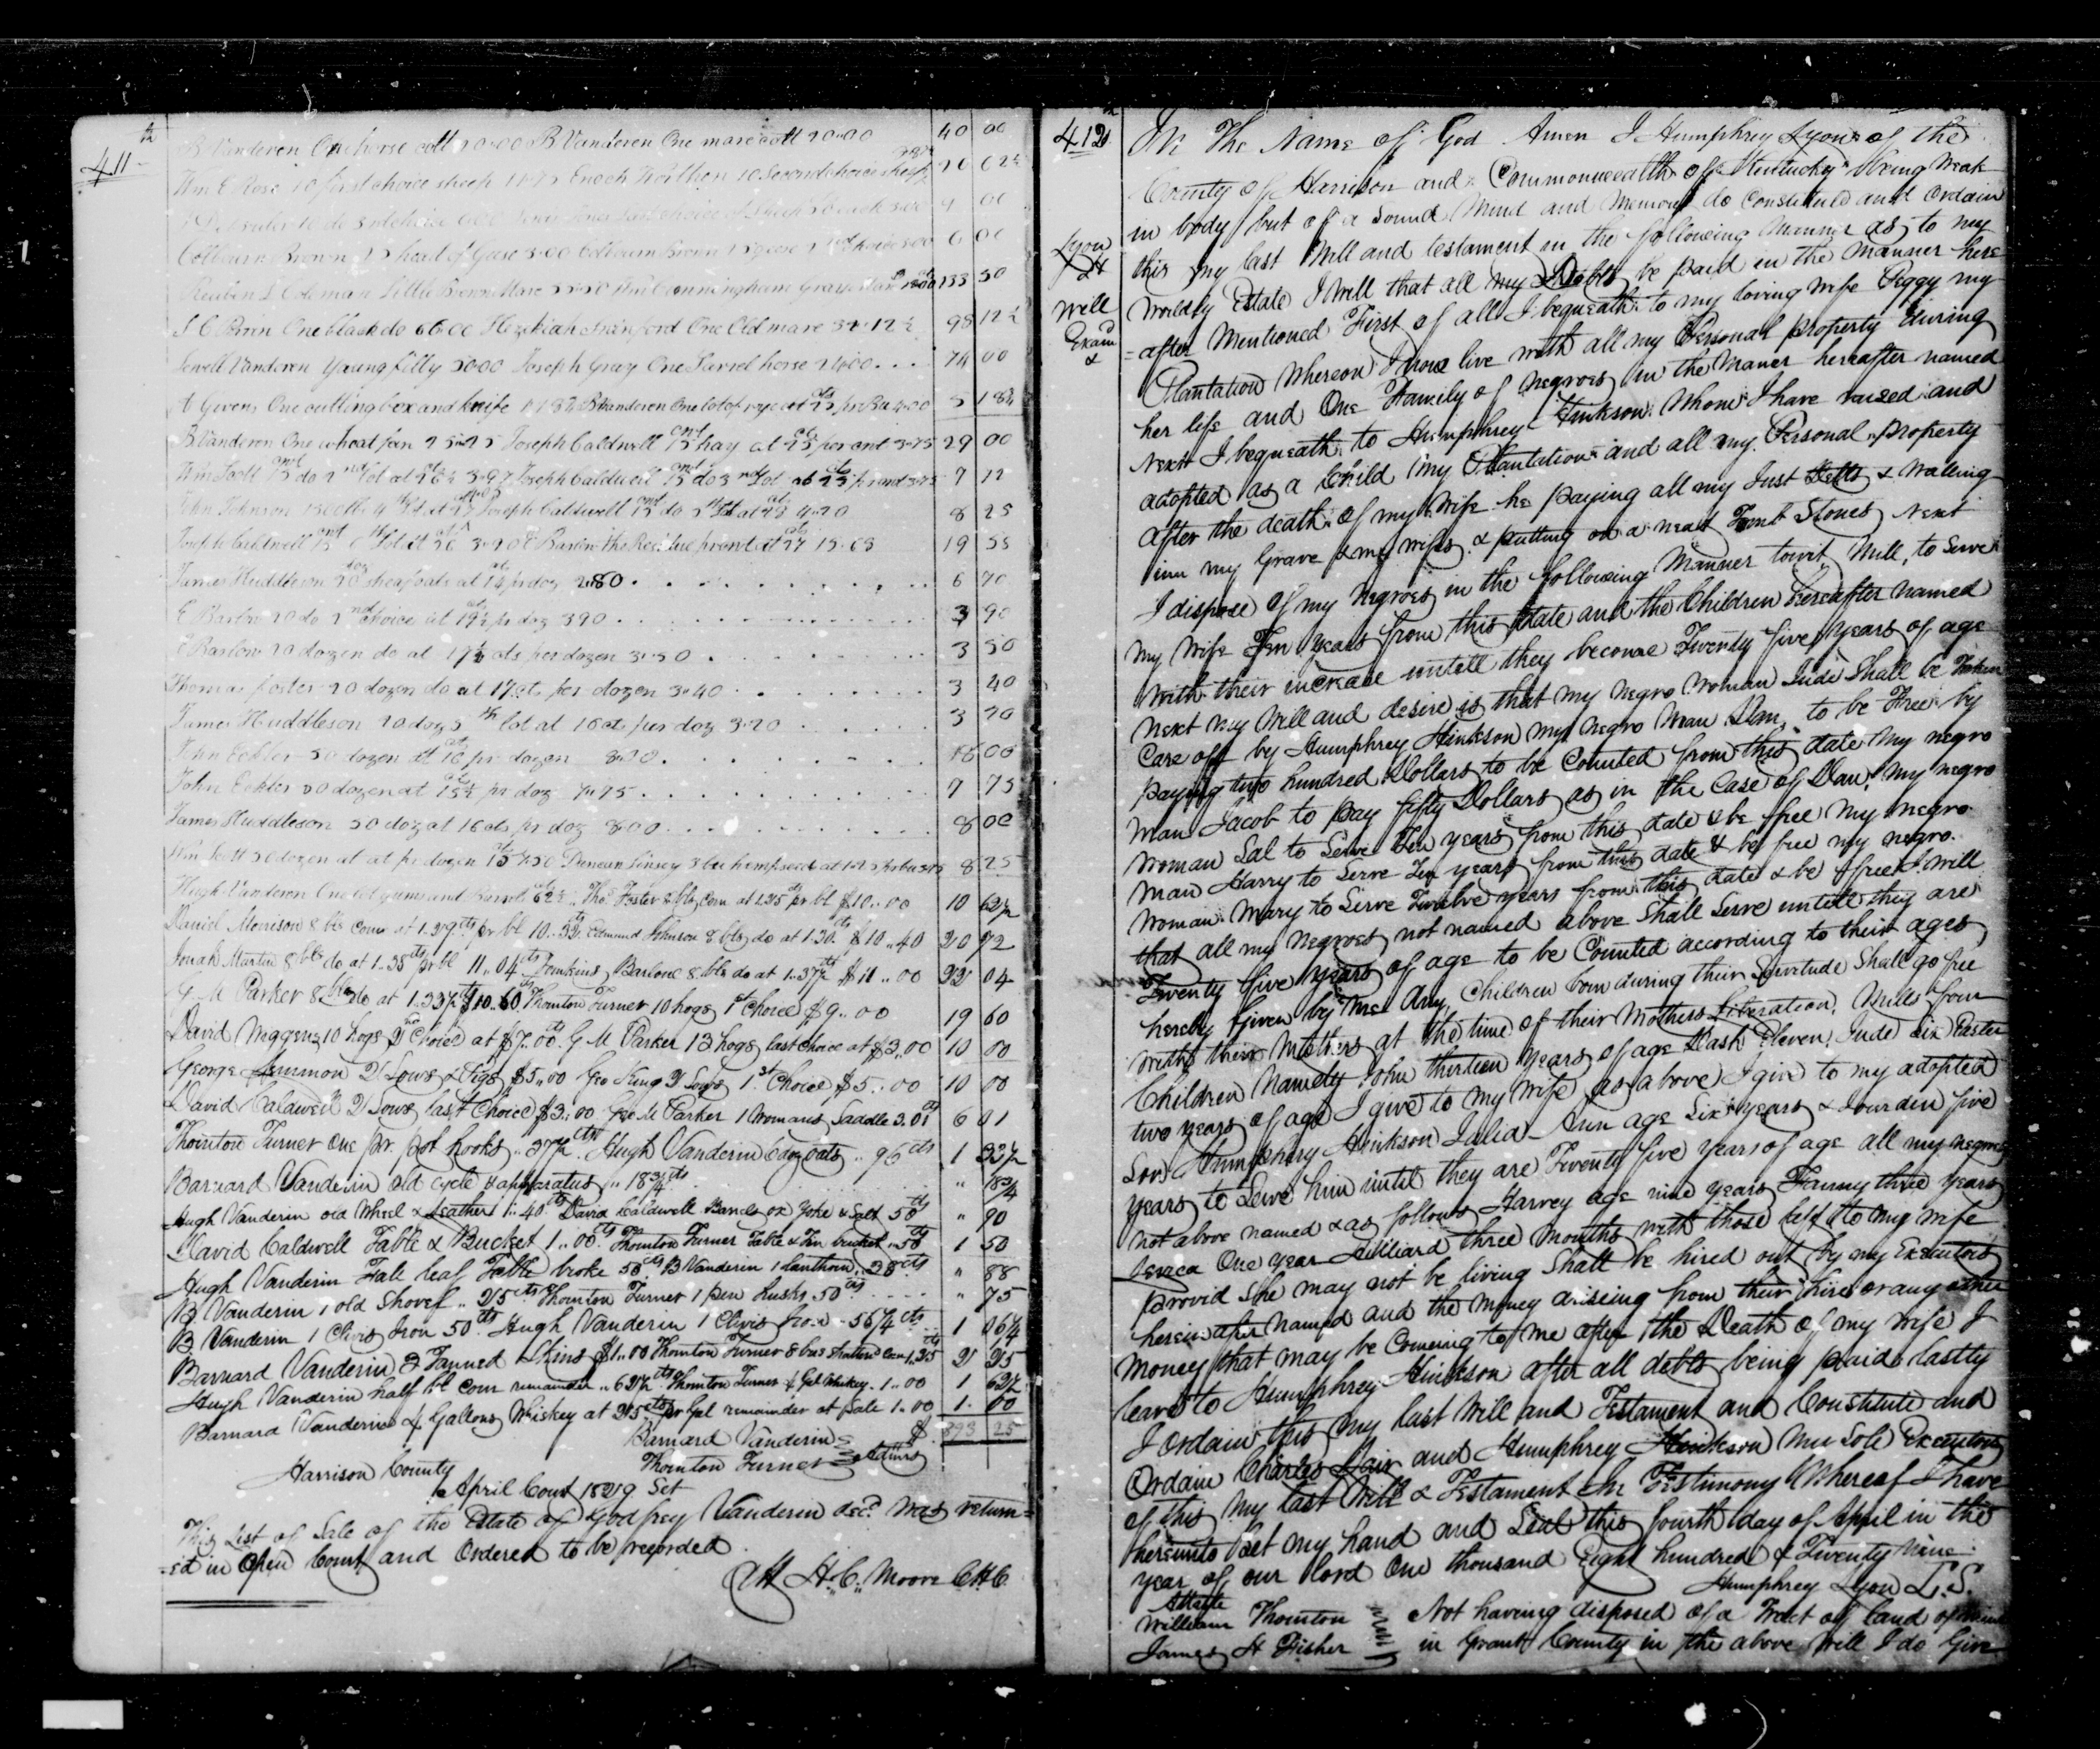 411th
B Vanderen One horse colt 20..00 B Vanderen One mare colt 20..00 40 00
Wm E Rose 10 first choice sheep Enoch 10 Second choice sheep 20 62½
10 do 3rd choice 4 00
Colbourn Brown 25 head of Geese 3.00 Colbourn Brown 25 geese 2nd choice 3.00 6 00
Reuben L Coleman Little Brown Mare Cunningham Gray 133 50
J C Brown One black do 66.00 Hezekiah One Old mare 32.12½ 98 12½
Sewell Vanderen Young filly 50.00 Joseph Gray One Sorrel horse 24.00 74 00
A Givens One cutting box and knife B Vanderen One lot of rye at 5 18¾
B. Vanderen One wheat fan 25..25 Joseph Caldwell 15 cwt hay at 25 cts per cwt 3..75 29 00
Wm Scott 15 cwt do 2nd lot at 26½ 3.97 Joseph Caldwell 15 do 3rd lot at 25 cts pr cwt 3.75 7 72
John Johnson Joseph Caldwell 15 cwt do 5th lot at 28 4..20 8 25
Joseph Caldwell 15 cwt E Barlow the Residue pr cwt at 27 15.63 19 53
James Huddleson 20 doz sheaf oats at 14 pr doz 2.80 6 70
E Barlow 20 do 2nd choice at 19½ pr doz 3.90 3 90
E Barlow 20 dozen do at 17½ cts per dozen 3..50 3 50
Thomas foster 20 dozen do at 17 cts per dozen 3..40 3 40
James Huddleson 20 doz 5th lot at 16 cts per doz 3..20 3 20
John Eckler 50 dozen at 16 cts pr dozen 8.00 16 00
John Eckler 50 dozen at 15½ cts pr doz 7..75 7 75
James Huddleson 50 doz at 16 cts pr doz 8.00 8 00
Wm Scott 30 dozen at pr dozen 15 4.50 Duncan Linsey 3 bu hemp seed at 1.25 pr bu 3.75 8 25
Hugh Vanderen One lot gums and Barrels 62½ Thos Foster 8 bls Corn at 1.25 cts pr bl $10..00 10 62½
Daniel Morrison 8 bls Corn at 1.29 cts pr bl 10..32 Edmund Johnson 8 bls do at 1.30 cts $10..40 20 72
Jonah Martin 8 bls do at 1.38 cts pr bl 11..04 Jenkins Barlow 8 bls do at 1.37½ $11..00 22 04
G. M Parker 8 bls do at 1.32½ $10..60 Thornton Turner 10 hogs 1st Choice $9..00 19 60
David Waggener 10 hogs 2nd Choice at $7..00 G M Parker 13 hogs last choice at $3..00 10 00
George Ammon 2 Sows & Pigs $5..00 Geo King 2 Sows 1st Choice $5..00 10 00
David Caldwell 2 Sows last Choice $3..00 Geo M Parker 1 Womans Saddle 3.01 6 01
Thornton Turner One Pr. pot hooks ..37½ cts Hugh Vanderin 6 doz oats ..96 cts 1 33½
Barnard Vanderin old cycle & apparatus ..18¾ cts .. 18¾
Hugh Vanderin old Wheel & Leather ..40 cts David Caldwell Barrels ox Yoke & Salt 50 cts .. 90
David Caldwell Table & Bucket 1..00 Thornton Turner Table & Tin bucket ..50 1 50
Hugh Vanderin Fall leaf Table broke 50 cts B Vanderin 1 lanthorn ..38 cts .. 88
B Vanderin 1 old Shovel ..25 cts Thornton Turner 1 pen husks .50 cts .. 75
B Vanderin 1 Clivis Iron 50 cts Hugh Vanderin 1 Clivis Iron ..56¼ cts 1 06¼
Barnard Vanderin 2 Tanned Skins $1..00 Thornton Turner 8 bus Corn 1.25 2 25
Hugh Vanderin half bl corn remainder ..62½ cts Thornton Turner 4 Gal Whiskey 1..00 1 62½
Barnard Vanderin 4 Gallons Whiskey at 25 cts pr Gal remainder at Sale 1..00 1. 00
$ 893 25
Barnard Vanderin
Thornton Turner } Admrs
Harrison County
April Court 1829 Sct
This List of Sale of the Estate of Godfrey Vanderin decd was return=
=ed in Open Court and Ordered to be recorded
Att H.C. Moore CHC
412th
Lyon
H
Will
Examd
&
In The Name of God Amen I Humphrey Lyon of the
County of Harrison and Commonwealth of Kentucky being Weak
in body but of a Sound Mind and Memory do Constitute and Ordain
this my last Will and testament in the following Manner as to my
Worldly Estate I Will that all my Debts be paid in the Manner here
=after Mentioned First of all I bequeath to my loving Wife Peggy my
Plantation Whereon I now live with all my Personal property During
her life and One Family of Negroes in the Maner hereafter named
Next I bequeath to Humphrey Hinkson Whom I have raised and
adopted as a Child my Plantation and all my Personal property
after the death of my Wife he paying all my Just Debts & Walling
inn my Grave & my wifes & putting on a neat Tomb Stones Next
I dispose of my Negroes in the following Manner towit, Mill, to Serve
my Wife Ten years from this date and the Children hereafter named
With their increase untill they become Twenty five years of age
next my Will and desire is that my negro Woman Jude Shall be Taken
Care off by Humphrey Hinkson my Negro Man Dan, to be Free by
paying two hundred Dollars to be Counted from this date My negro
Man Jacob to pay fifty Dollars as in the Case of Dan, My negro
Woman Sal to Serve Ten years from this date & be free My negro
Man Harry to Serve Ten years from this date & be free my negro
Woman Mary to Serve Twelve years from this date & be free I Will
that all my Negroes not named above Shall Serve untill they are
Twenty five years of age to be Counted according to their ages
hereby given by me Any Children born during their Servitude Shall go free
with their Mothers at the time of their Mothers Liberation, Mills four
Children Namely John thirteen years of age Dash Eleven, Jude Six Easter
two years of age I give to my Wife as above I give to my adopted
Son Humphry Hinkson Julia Ann age Six years & Jourden five
years to Serve him until they are Twenty five years of age all my negroes
not above named & as follows Harvey age nine years Fanny three years
Seneca One year Hilliard three Months with those left to my Wife
Provid She may not be living Shall be hired out by my Executors
herein after Named and the Money ariseing from their hire or any other
Money that may be Comeing to me after the Death of my Wife I
leave to Humphrey Hinkson after all debts being paid lastly
I Ordain this my last Will and Testament and Constitute and
Ordain Charles Lair and Humphrey Hinkson my Sole Executors
of this my last Will & Testament In Testimony Whereof I have
hereunto Set my hand and Seal this fourth day of April in the
year of our lord One thousand Eight hundred & Twenty Nine
Humphrey Lyon L.S.
Atteste
William Thornton
James H Fisher
Not having disposed of a Tract of land of mine
in Grant County in the above Will I do Give